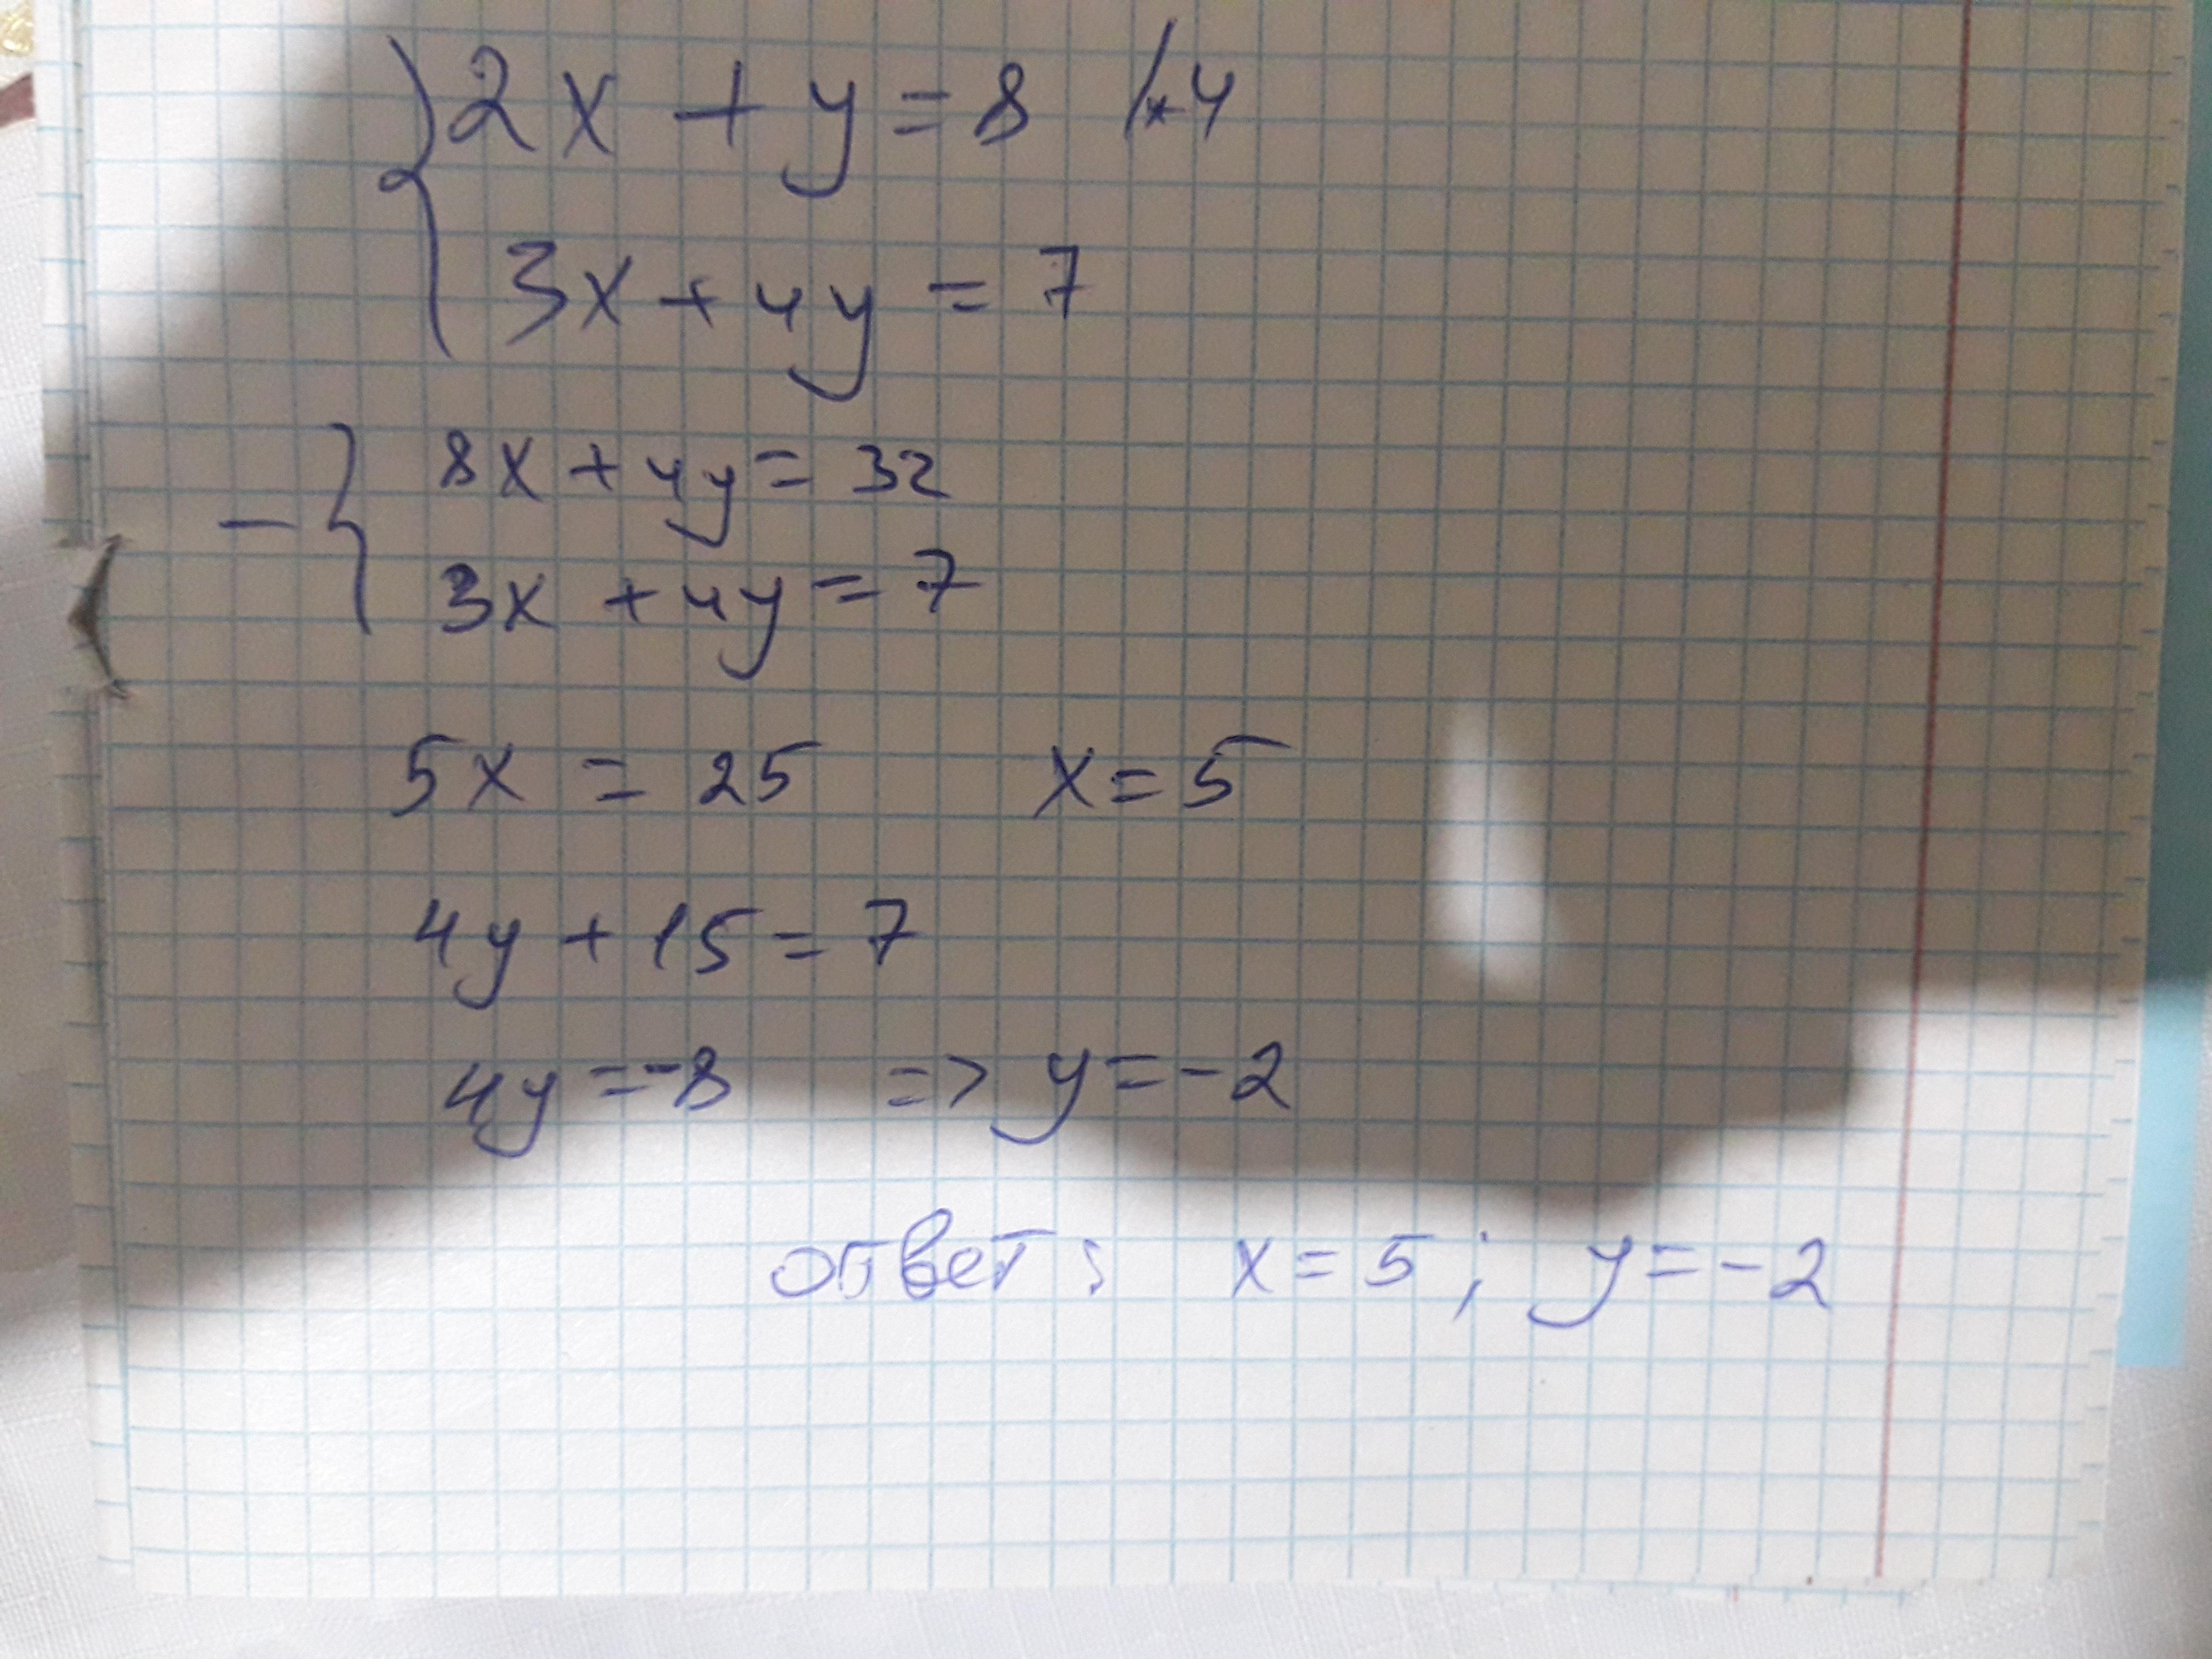 2x + y = 8 /*4
3x + 4y = 7
8x + 4y = 32
- 
3x + 4y = 7
5x = 25 x = 5
4y + 15 = 7
4y = -8 => y = -2
ответ: x = 5; y = -2